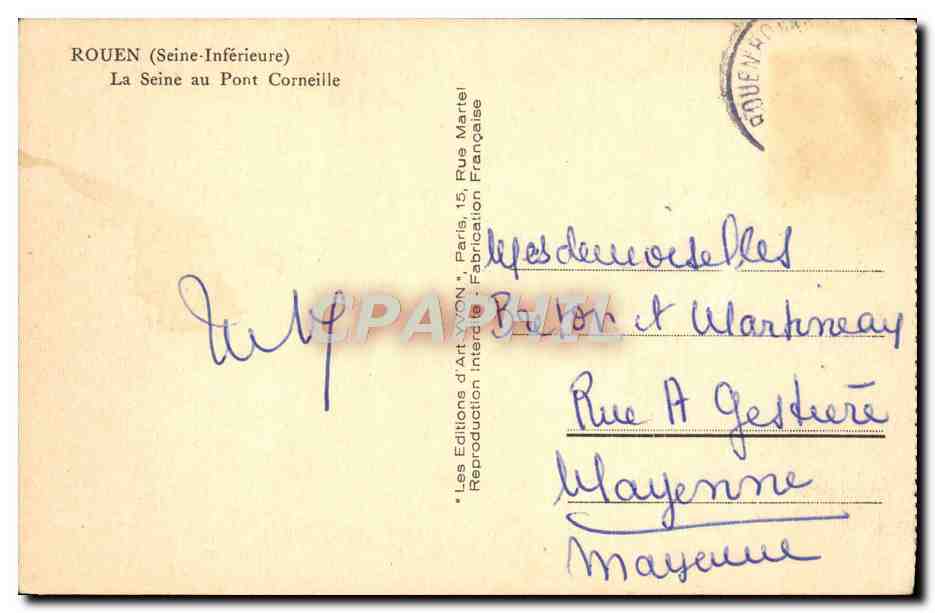 ROUEN (Seine-Inférieure)
La Seine au Pont Corneille
" Les Editions d'Art YVON ", Paris, 15, Rue Martel
Reproduction Interdite - Fabrication Française
CPAPHIL
Mesdemoiselles
Breton et Martineau
Rue A Gestière
Mayenne
Mayenne